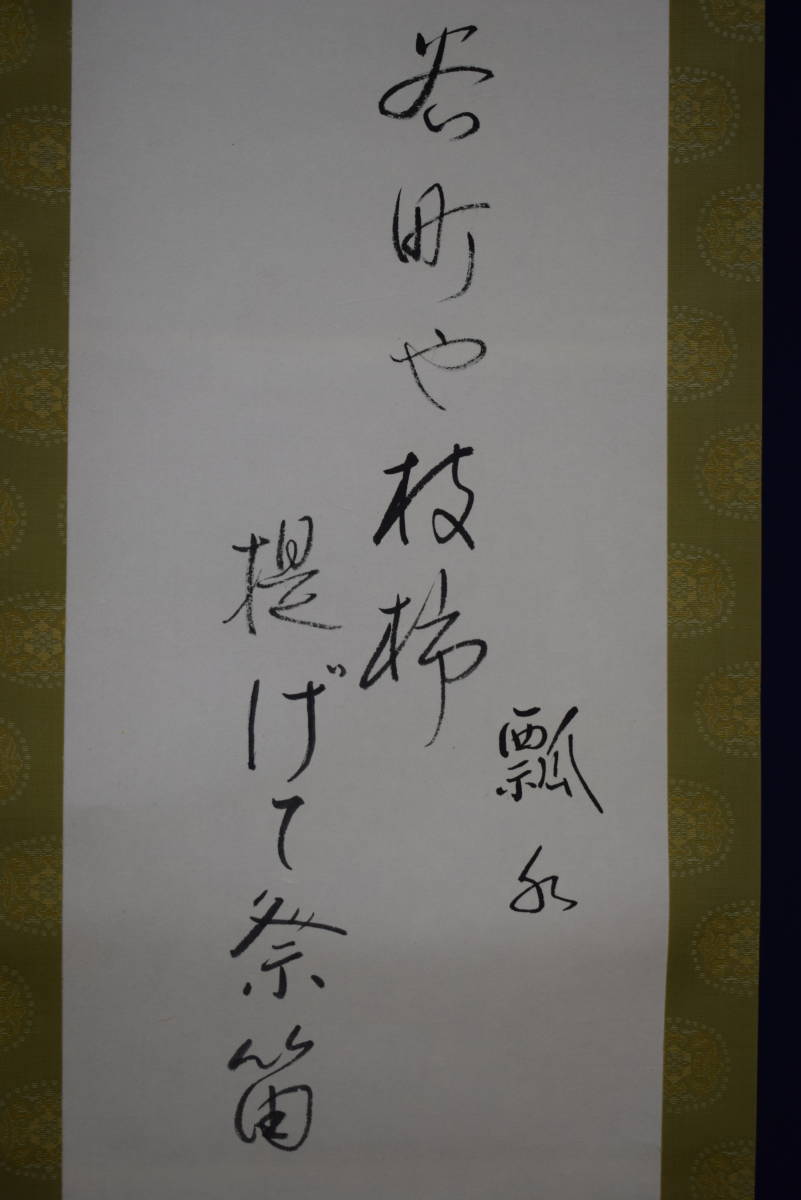 谷町や枝柿
提げて祭笛
瓢水